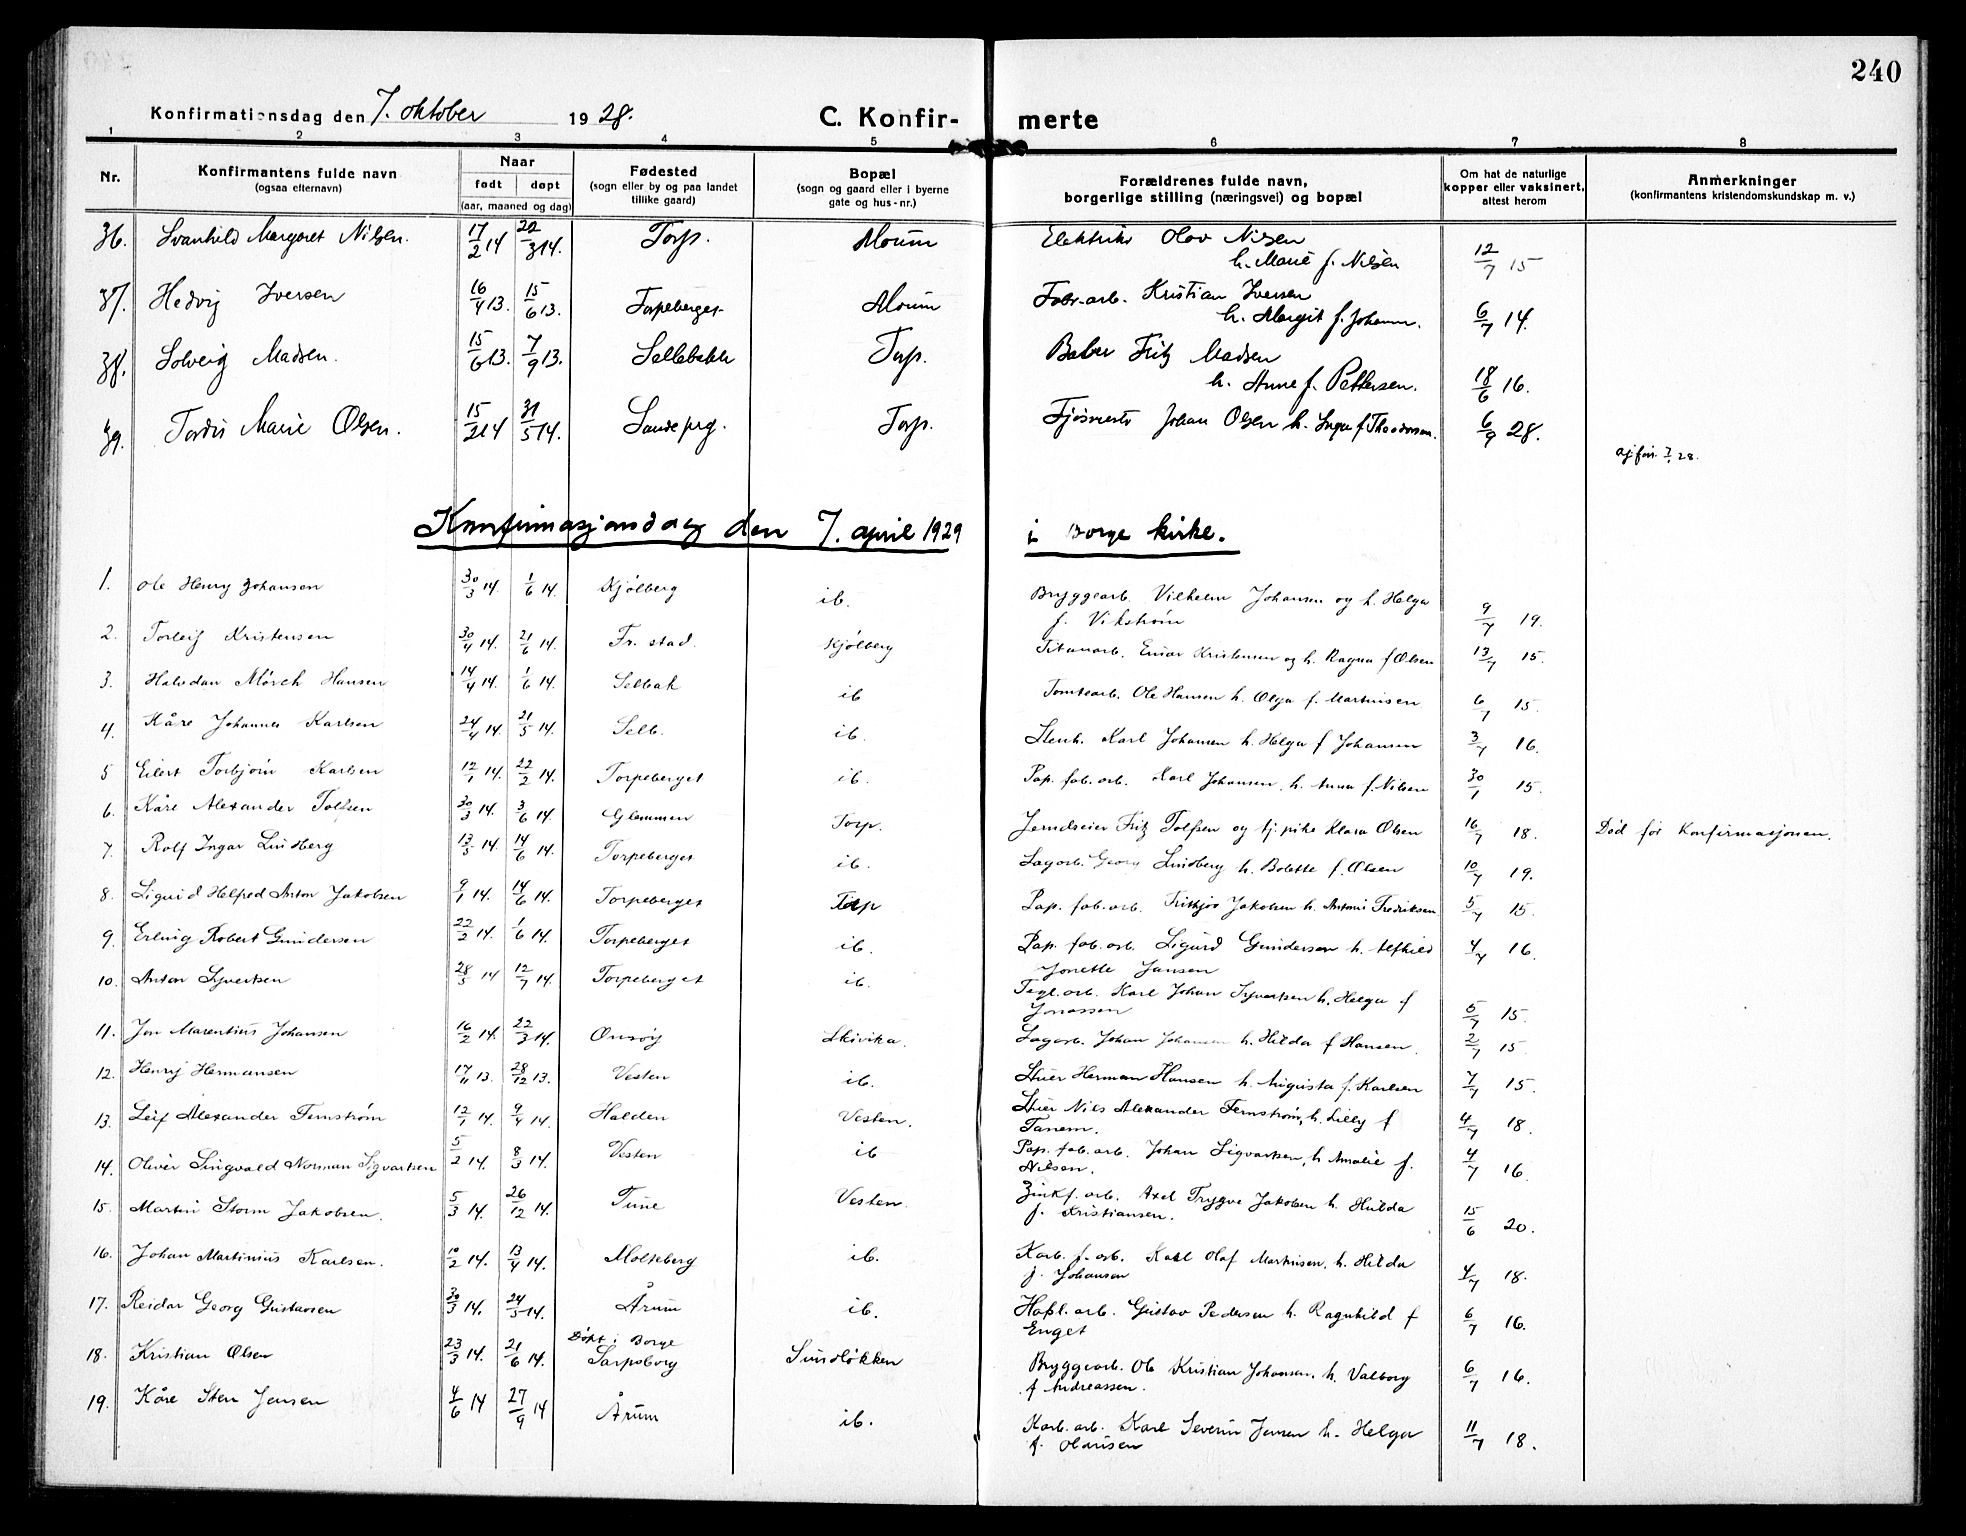 240
Konfirmationsdag den 7. oktober 1928. C. Konfir- merte
1 2 3 4 5 6 7 8
Nr. Konfirmantens fulde navn (ogsaa efternavn) Naar født døpt (aar, maaned og dag) Fødested (sogn eller by og paa landet tillike gaard) Bopæl (sogn og gaard eller i byerne gate og hus-nr.) Forældrenes fulde navn, borgerlige stilling (næringsvei) og bopæl Om hat de naturlige kopper eller vaksinert, attest herom Anmerkninger (konfirmantens kristendomskundskap m. v.)
36. Svanhild Margaret Nilsen. 17/2 14 22/3 14. Torp. Moum Elektriker Olav Nilsen h. Marie f. Nilsen 12/7 15
37. Hedvig Iversen 16/4 13. 15/6 13. Torpeberget Moum Fabr-arb. Kristian Iversen h. Margit f. Johann. 6/7 14.
38. Solveig Madsen. 15/6 13. 7/9 13. Sellebakk Torp. Baker Fritz Madsen h. Anne f. Pettersen. 18/6 16.
39. Tordis Marie Olsen. 15/2 14 31/5 14. Sandeprg. Torp. Fjøsmester Johan Olsen h. Inga f Theodorsen. 6/9 28.
28.
Konfirmasjonsdag den 7. april 1929 i Borge kirke.
1. Ole Henry Johansen 30/3 14. 1/6 14. Kjølberg ib. Bryggearb. Vilhelm Johansen og h. Helga f. Vikstrøm 9/7 19.
2. Torleif Kristensen 30/4 14. 21/6 14. Fr. stad. Kjølberg Titanarb. Einar Kristensen og h. Ragna f Olsen 13/7 15.
3. Halvdan Mørch Hansen 14/4 14. 1/6 14. Selbak ib Tomtearb. Ole Hansen h. Olga f. Martinsen 6/7 15.
4. Kåre Johannes Karlsen 24/4 14. 21/5 14. Selb. ib. Stenh. Karl Johansen h. Helga f Johansen 3/7 16.
5 Eilert Torbjørn Karlsen 12/1 14. 22/2 14. Torpeberget ib. Pap. fab. arb. Karl Johansen, h. Anna f. Nilsen 30/1 15.
6. Kåre Alexander Tolfsen 30/3 14. 3/6 14. Glemmen Torp. Jerndreier Fritz Tolfsen og tj. pike Klara Olsen 16/7 18. Død før Konfirmasjonen.
7. Rolf Ingar Lindberg 13/5 14. 14/6 14. Torpeberget ib. Sagarb. Georg Lindberg h. Bolette f. Olsen 10/7 19.
8. Sigurd Helfred Anton Jakobsen 9/1 14. 14/6 14. Torpeberget Torp Pap. fab. arb. Fritkjov Jakobsen h. Antoni Fredriksen 5/7 15.
9. Erling Robert Gundersen 22/2 14. 1/6 14. Torpeberget ib. Pap. fab. arb. Sigurd Gundersen h. Alfhild Jonette Jansen 4/7 16.
10. Anton Syvertsen 28/5 14 12/7 14. Torpeberget ib. Tegl. arb. Karl Johan Syvertsen h. Helga f Jonassen 5/7 15.
11. Jon Marentius Johansen 16/2 14. 22/3 14. Onsøy Skivika. Sagarb. Johan Johansen h. Hilda f Hansen. 2/7 15.
12. Henry Hermansen 17/11 13. 28/12 13. Vesten ib. Stuer Herman Hansen h. Augusta f. Karlsen 7/7 15.
13. Leif Alexander Fernstrøm 12/1 14. 9/4 14. Halden Vesten. Stuer Nils Alexander Fernstrøm, h. Lilly f Tanem. 4/7 18.
14. Oliver Singvald Norman Sigvartsen 5/2 14. 8/3 14. Vesten ib Pap. fab. arb. Johan Sigvartsen, h Amalie f. Nilsen. 4/7 16.
15. Martin Storm Jakobsen. 5/3 14. 26/12 14. Tune Vesten. Zinkf. arb. Axel Trygve Jakobsen h. Hulda f. Kristiansen. 15/6 20.
16. Johan Martinius Karlsen. 10/2 14. 13/4 14. Molteberg ib. Karb. f. arb. Karl Olaf Martinsen. h. Hilda f. Johansen 4/7 18.
17. Reidar Georg Gustavsen 30/3 14. 24/5 14. Årum ib. Høvl. arb. Gustav Pedersen h. Ragnhild f Enget 6/7 16.
18. Kristian Olsen 23/3 14. 21/6 14. Døpt i Borge Sarpsborg Sundløkken Bryggearb. Ole Kristian Johansen, h. Valborg f Andreassen. 6/7 16.
19. Kåre Sten Jensen 4/6 14 27/9 14 Årum ib. Karb. arb. Karl Severin Jensen h. Helga f. Olausen 11/7 18.